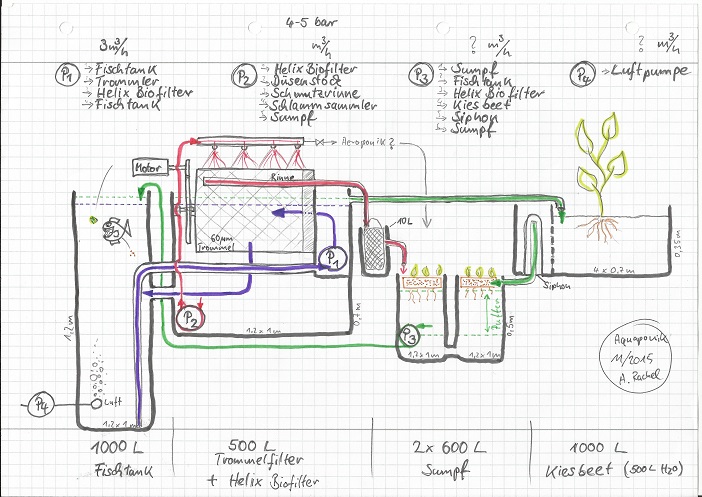 4-5 bar
3 m³/h
m³/h
? m³/h
? m³/h
P1 → Fischtank
→ Trommler
→ Helix Biofilter
→ Fischtank
P2 → Helix Biofilter
→ Düsenstock
→ Schmutzrinne
→ Schlammsammler
→ Sumpf
P3 → Sumpf
→ Fischtank
→ Helix Biofilter
→ Kiesbeet
→ Siphon
→ Sumpf
P4 → Luftpumpe
→ Aeroponik?
Motor
Rinne
10L
60µm
Trommel
P1
4 x 0,7 m
0,35 m
Siphon
1,2 m
P2
0,7 m
P3
Puffer
0,5 m
1,2 x 1 m
1,2 x 1 m
1,2 x 1 m
Aquaponik
11/2015
A. Rachel
P4
Luft
1,2 x 1 m
1000 L
Fischtank
500 L
Trommelfilter
+ Helix Biofilter
2 x 600 L
Sumpf
1000 L
Kiesbeet (500L H2O)